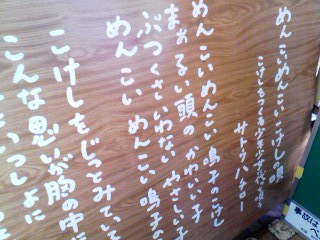 めんこいめんこいこけしの唄
こけしをつくる少年少女たちの唄
サトウハチロー
めんこいめんこい 鳴子のこけし
まあるい頭の かわいい子
ぶつくさいわない やさしい子
めんこい めんこい 鳴子の
こけしをじっとみていて
こんな思いが胸の中に
いっしょに
事故は